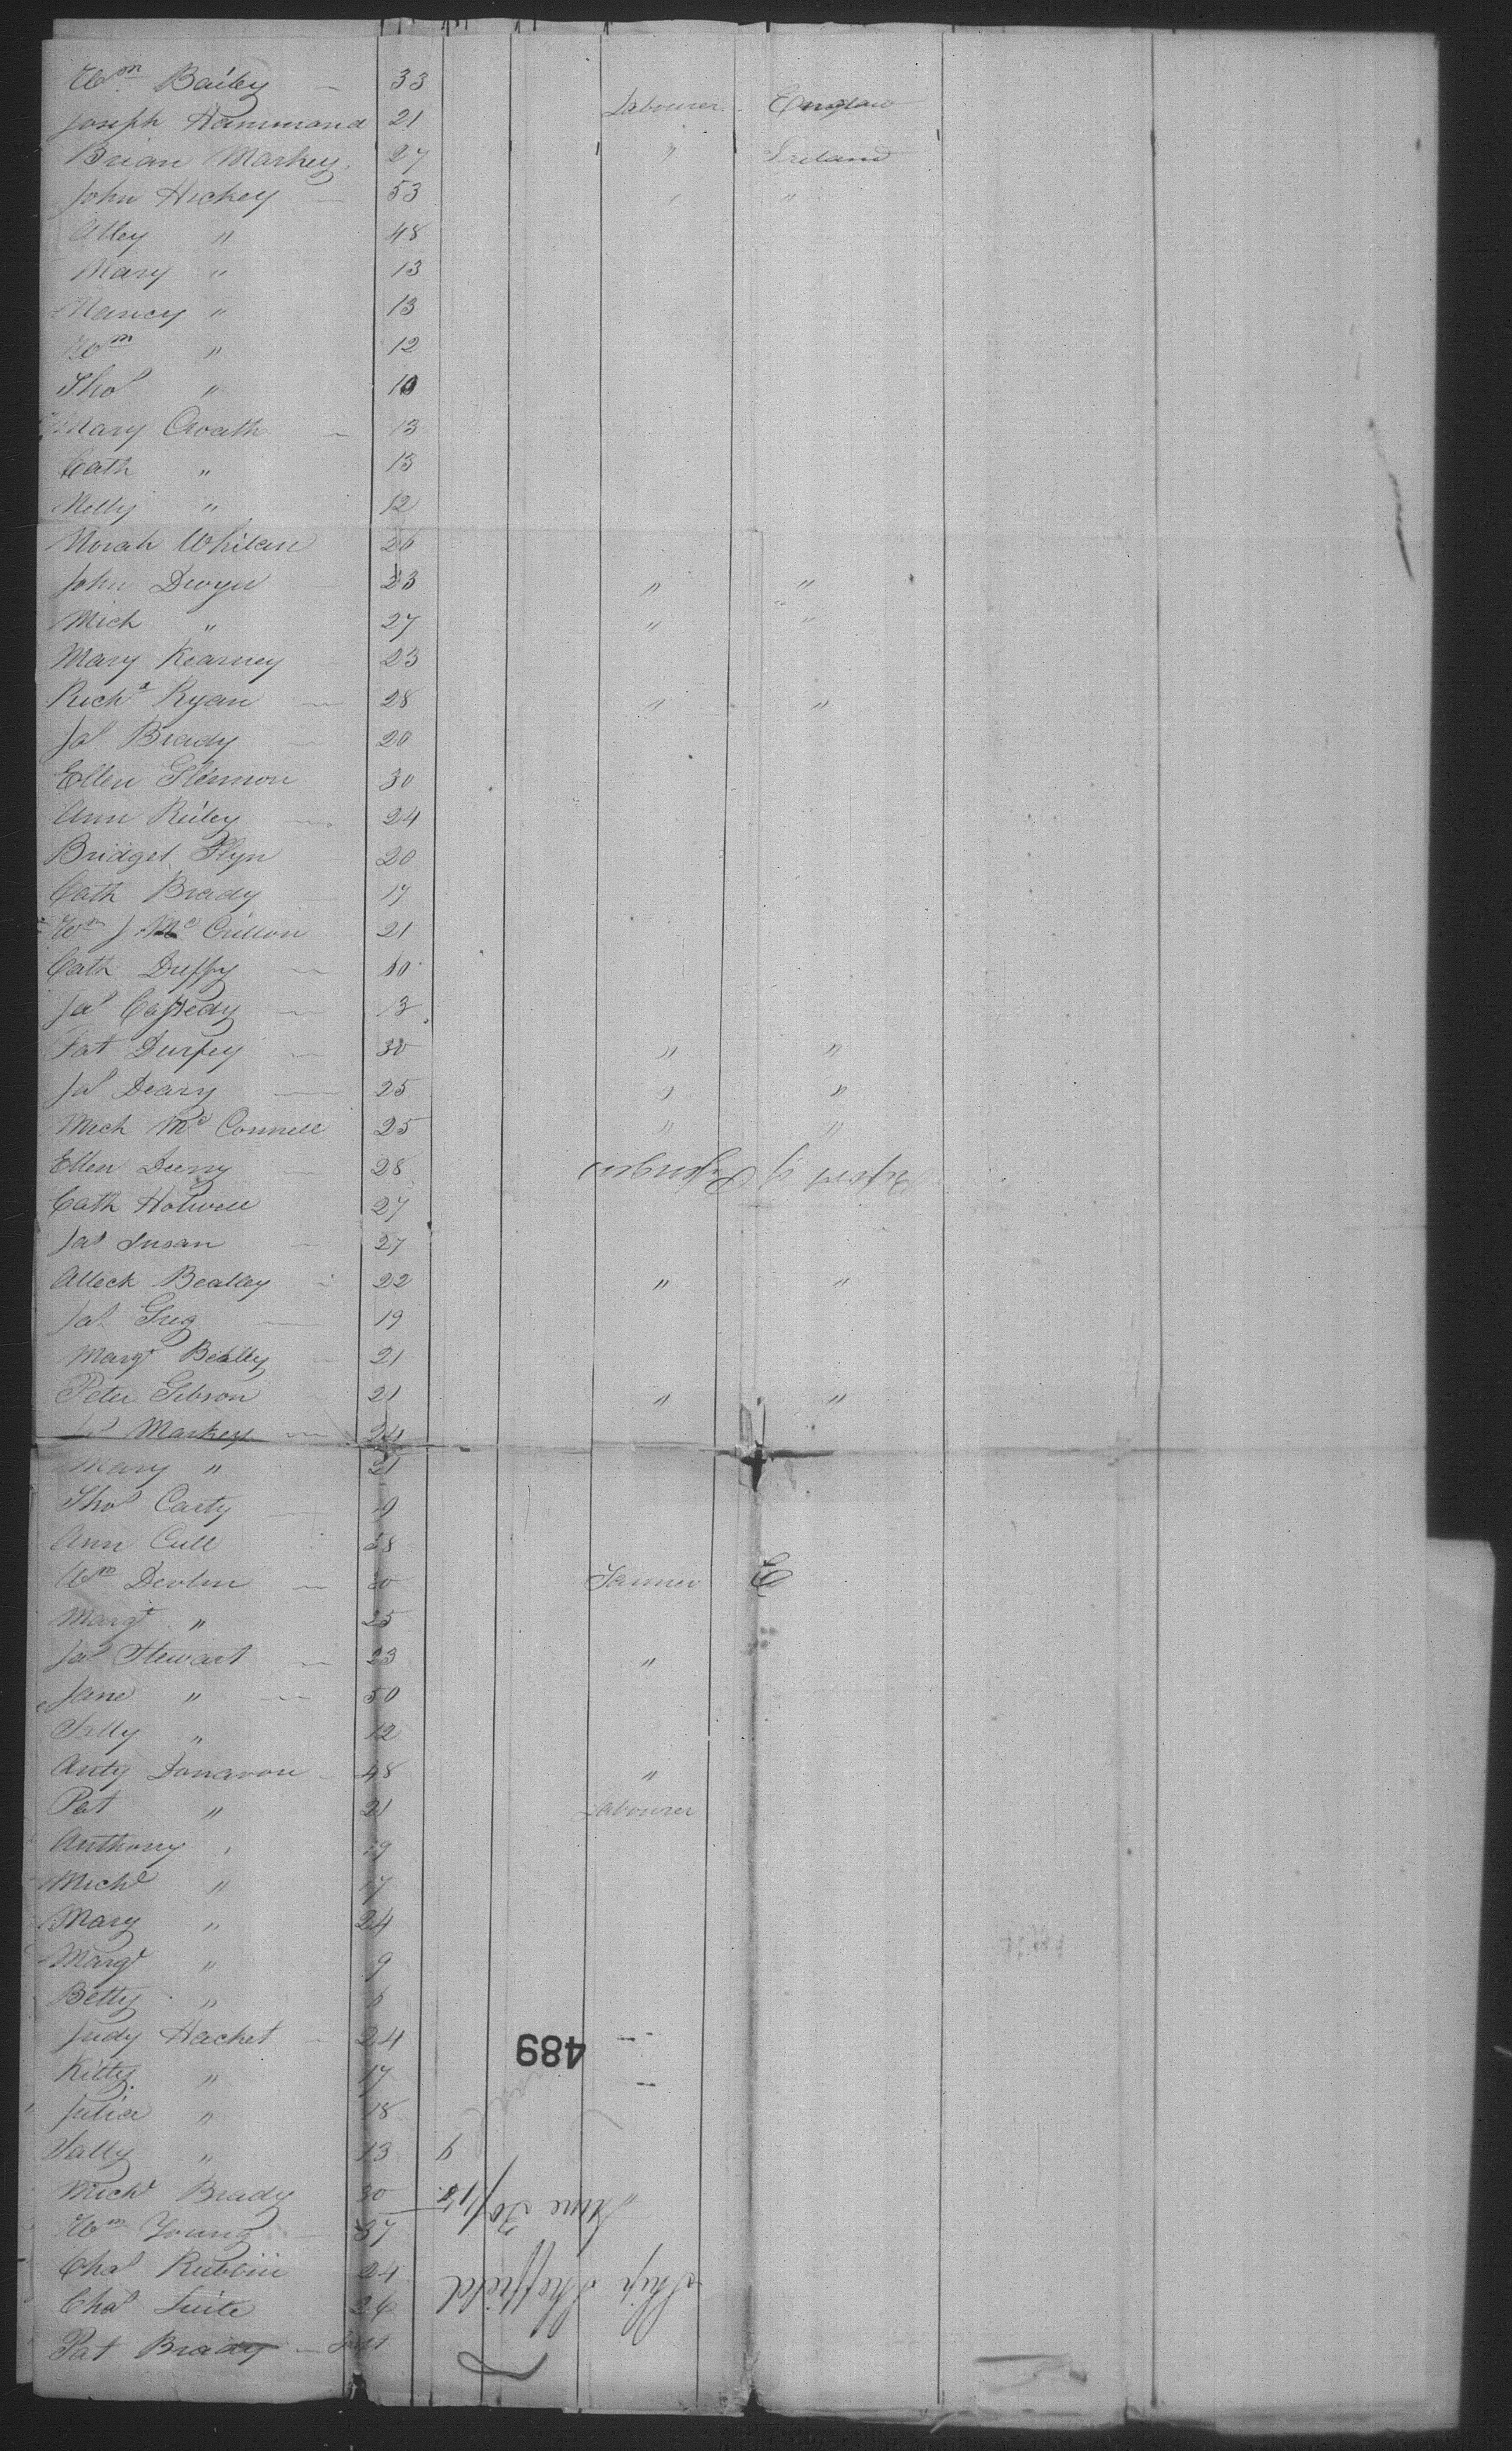 Wm Bailey — 33
Joseph Hammond 21 Labourer England
Brian Markey 27 " Ireland
John Hickey — 53 " "
Alley " 48
Mary " 13
Nancy " 13
Wm " 12
Thos " 10
Mary Croath — 13
Cath " 13
Nelly " 12
Norah Whilan 26
John Dwyer 23 " "
Mich " 27 " "
Mary Kearney 23
Richd Ryan — 28 " "
Jas Brady — 20
Ellen Glennon 30
Ann Riley — 24
Bridget Flyn 20
Cath Brady 17
Wm J. Mc 21
Cath Duffy — 10
Jas Cassedy — 13
Pat Durfey — 30 " "
Jas Deary — 25 " "
Mich Mc Connell 25 " "
Ellen Deery — 28
Report of Passengers
Cath Holwell 27
Jas Susan 27
Alleck Bealley 22 " "
Jas Greg — 19
Margt Bealley — 21
Peter Gibson 21 " "
Jas Markey — 24
Mary " 21
Thos Carty — 19
Ann Cull 28
Wm Devlin — 30 Farmer
Margt " 25
Jas Stewart — 23 "
Jane " — 50
Sally " 12
Anty Donavon 48 "
Pat " 21 Labourer
Anthony " 19
Michl " 17
Mary " 24
Margt " 9
Betty " 6
Judy Hachet — 24
489
Kitty " 17
Julia " 18
Sally " 13
Michl Brady 30
June 30/
Wm Young — 37
Chas 24
Ship Sheffield
Chas 26
Pat Brady —